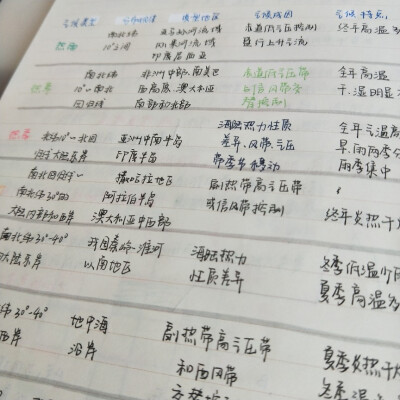 气候类型 分布规律 典型地区 气候成因 气候特点
热雨 南北纬 亚马孙河流域 赤道低气压控制 终年高温多
10°之间 刚果河流域 盛行上升气流
印度尼西亚
热草 南北纬 非洲中部、南美巴 赤道低气压带 全年高温
10°~南北 西高原、澳大利亚 和信风带交 干湿明显
回归线 南部和北部 替控制
热季 北纬10°~北回 亚洲中南半岛 海陆热力性质 全年气温高
归线大陆东岸 印度半岛 差异、风带、气压 旱雨两季分
带季节移动 雨季集中
南北回归线~ 撒哈拉地区 副热带高气压带
南北纬30°的 阿拉伯半岛 或信风带控制 终年炎热干
大陆内部和西岸 澳大利亚中西部
南北纬30°-40° 我国秦岭-淮河 海陆热力 冬季低温
大陆东岸 以南地区 性质差异 夏季高温多
纬30°-40° 地中海 副热带高气压带 夏季炎热干
西岸 沿岸 和西风带 冬季温
交替